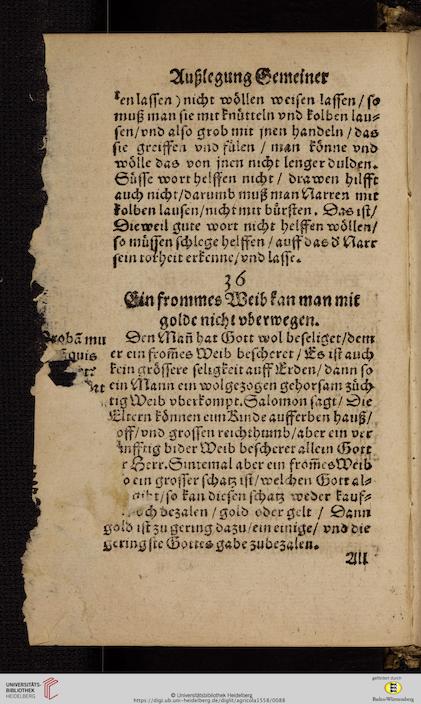 Außlegung Gemeiner
ken lassen) nicht wöllen weisen lassen / so
muß man sie mit knütteln vnd kolben lau⸗
sen/vnd also grob mit jnen handeln / das
sie greiffen vnd fülen / man könne vnd
wölle das von jnen nicht lenger dulden.
Süsse wort helffen nicht / drawen hilfft
auch nicht/darumb muß man Narren mit
kolben lausen/nicht mit bürsten. Das ist/
Dieweil gute wort nicht helffen wöllen/
so müssen schlege helffen / auff das d Narr
sein torheit erkenne/vnd lasse.
36
Ein frommes Weib kan man mit
golde nicht vberwegen.
Den Mañ hat Gott wol beseliget/dem
er ein from̃es Weib bescheret / Es ist auch
kein grössere seligkeit auff Erden/dann so
ein Mann ein wolgezogen gehorsam züch⸗
tig Weib vberkompt. Salomon sagt / Die
Eltern können eim Kinde aufferben hauß/
hoff/vnd grossen reichthumb/aber ein ver
nünfftig bider Weib bescheret allein Gott
der Herr. Sintemal aber ein from̃es Weib
so ein grosser schatz ist/welchen Gott al⸗
gibt/so kan diesen schatz weder kauf⸗
noch bezalen / gold oder gelt / Dann
gold ist zu gering dazu/ein einige/ vnd die
geringste Gottes gabe zubezalen.
All
Probã mu
quis
UNIVERSITÄTS-
BIBLIOTHEK
HEIDELBERG
© Universitätsbibliothek Heidelberg
https://digi.ub.uni-heidelberg.de/diglit/agricola1558/0088
gefördert durch
Baden-Württemberg